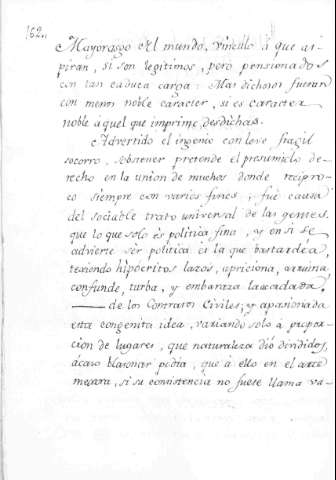 162.
Mayorasgo del mundo, vinculo à que as-
piran, si son legitimos, pero pensionados
con tan caduca carga: Mas dichosos fueran
con menos noble caracter, si es caracter
noble à quel que imprime desdichas.
Advertido el ingenio con leve fragil
socorro, obtener pretende el presumido de-
recho en la union de muchos donde recipro-
co siempre con varios fines, fue causa
del sociable trato universal de las gentes,
que lo que solo es politica fina, y en si se
advierte sèr politica es la que bastardéa,
texiendo hipocritos lazos, apriciona, arruina
confunde, turba, y embaraza lazadada.
de los Contratos Civiles; y apasionada
esta congenita idea, variando solo à propor-
cion de lugares, que naturaleza dió divididos,
ácaso blasonar podia, que à ello en el
mezcara, si su consistencia no fuese llama va-